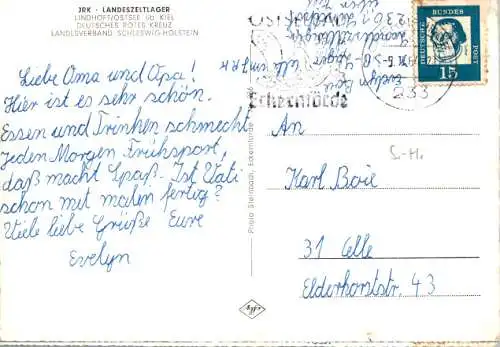 JRK - LANDESZELTLAGER
LINDHOFT/OSTSEE üb KIEL
DEUTSCHES ROTES KREUZ
LANDESVERBAND SCHLESWIG-HOLSTEIN
Liebe Oma und Opa!
Hier ist es sehr schön.
Essen und Trinken schmeckt
Jeden Morgen Frühsport,
daß macht Spaß. Ist Vati
schon mit malen fertig?
Viele liebe Grüße Eure
Evelyn
Evelyn Boie
Eckernförde
233
DEUTSCHE BUNDES POST
15
Photo Steinbach, Eckernförde
Agfa
An
S.-H.
Karl Boie
31 Celle
Elderhorststr. 43